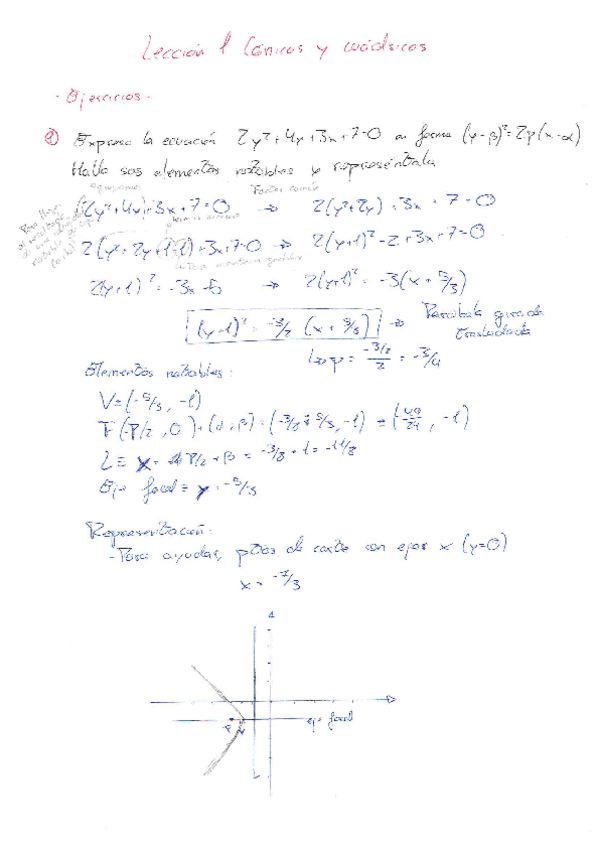 Lección 1 Cónicas y cuádricas
- Ejercicios -
① Expresa la ecuación 2y²+4y+3x+7=0 en forma (y-β)²=2p(x-α)
Halla sus elementos notables y represéntala
Agrupamos Factor común
(2y²+4y)+3x+7=0 → 2(y²+2y)+3x+7=0
2(y²+2y+1-1)+3x+7=0 → 2(y+1)²-2+3x+7=0
Para mantener igualdad
2(y+1)²=-3x-5 → 2(y+1)²=-3(x+5/3)
(y+1)²=-3/2 (x+5/3) → Parábola girada trasladada
↳ p = -3/2 / 2 = -3/4
Elementos notables:
V=(-5/3, -1)
F(-P/2, 0)+(α, β)=(-3/8 5/3, -1) = (-49/24, -1)
L≡ x= P/2+β = -3/8+1 = -11/8
Eje focal ≡ y=-5/3
Representación:
- Para ayudar, ptos de corte con ejes x (y=0)
x=-7/3
eje focal